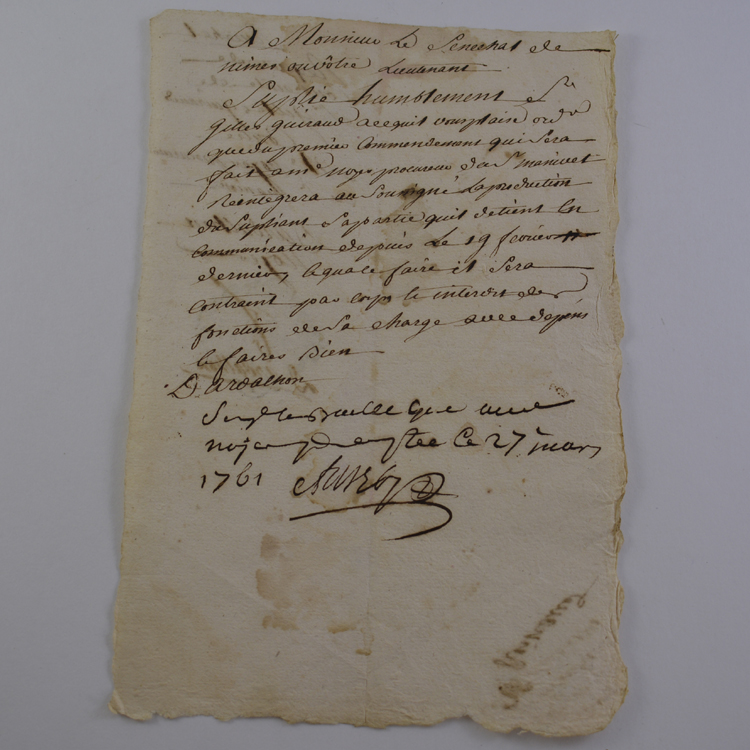 A Monsieur Le Senechal de
nimes ou vôtre Lieutenant
Suplie humblement Sr
Gilles guiraud a ce quil vous plaise ord
que du premier Commendement qui Sera
fait a me noye procureur du Sr manivet
Reintegrera au SouSigné La production
du Supliant Sa partie quil detient En
Communication depuis Le 19 fevrier
dernier, a quoi ce faire il Sera
Contraint par corps et interdit des
fonctions de Sa charge avec depens
et faires Bien
Dardalhon
ce 27 mars
1761